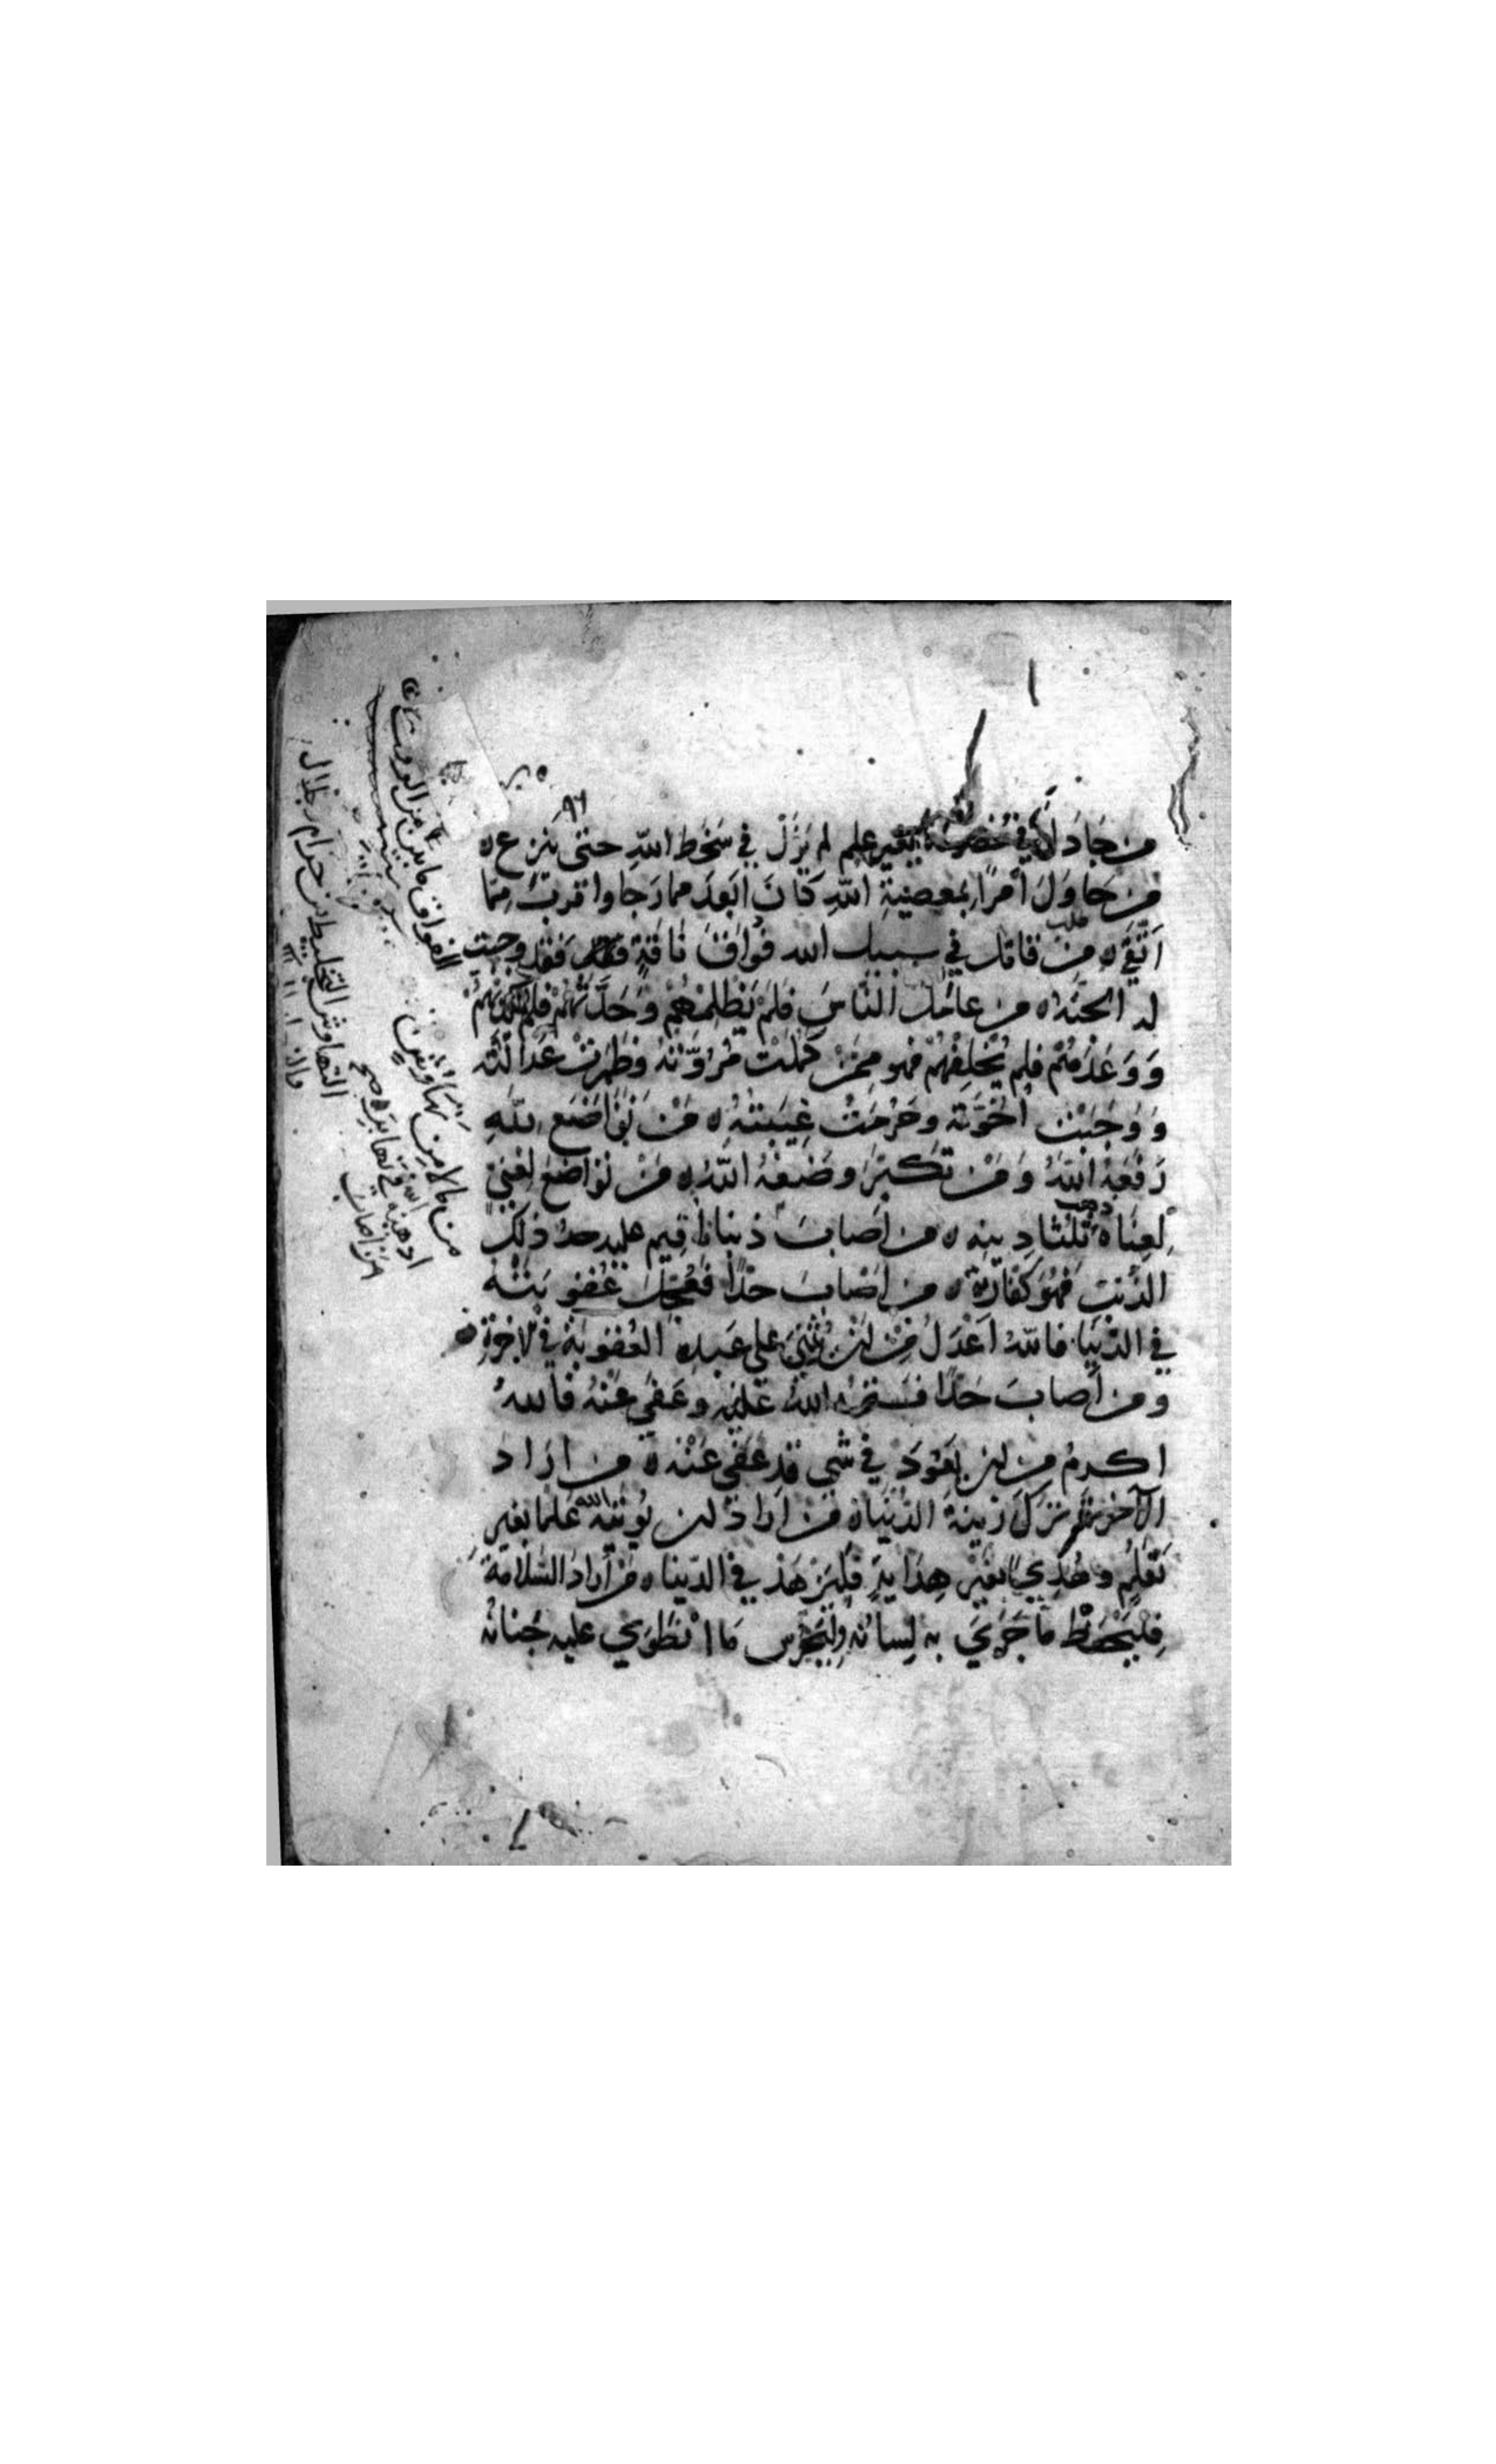 ٩٦
من جَادَل في خصومة بغير علم لم يَزَلْ في سَخَط اللّهِ حتى ينزع ه
من حَاوَلَ أمرًا بمعصية اللّهِ كَانَ ابْعَدَ مما رَجا واقربَ مِمّا
اتَّقَى ه مَن قاتل في سبيل الله فُوَاقَ نَاقَةٍ فقد وجبت
له الجنة ه من عَامَل النَّاسَ فلَمْ يَظْلِمْهُمْ وَحَدَّثَهُمْ فلم يكذبهم
وَوَعَدَهُمْ فلم يُخْلِفْهُمْ فهو ممن كَمُلَتْ مُرُوّتُهُ وظَهَرَتْ عَدَالَتُه
وَوَجَبَتْ اخُوَّتُه وحَرُمَتْ غِيبَتُهُ ه مَنْ تَوَاضَعَ للّهِ
رَفَعَهُ اللّهُ وَمَنْ تَكَبّرَ وضَعَهُ اللّهُ ه مَنْ تَوَاضَعَ لِغَنِيٍّ
لِغِنَاهُ ذهب ثلثا دينه ه من أصابَ ذنبا فاقيم عليه حدُّ ذلك
الذنب فَهُوَ كَفّارَتُهُ ه من أصَابَ حَدًّا فعُجِّلَ عُقُوبَتُه
في الدّنْيَا فاللّهُ اَعْدَلُ مِنْ ان يُثَنّيَ على عَبدِهِ العُقُوبَةَ في الاخرةِ
ومن أصابَ حَدًّا فسَتَرَهُ اللّهُ عَلَيْهِ وعَفَى عَنْهُ فاللهُ
اكرمُ من ان يَعُودَ في شيء قد عَفَى عَنْه ه من ارَادَ
الآخرة ترك زينة الدّنْيَا ه مَنْ ارادَ ان يُوتيَه الله عِلْمًا بغير
تَعَلُّمٍ وهُدًى بغَيْر هِدَايةٍ فليَزْهَدْ في الدّنيا ه من أرادَ السَّلامةَ
فليَحْفَظْ ما جَرَى به لِسَانُهُ وليحرس مَا انْطَوَى عليه جَنانُه
الفواق ما بين من الوقت
من اصاب مالا من نهاوش
اذهبه الله في نهابر ه صح
التهاوش التخليط من حرام وحلال